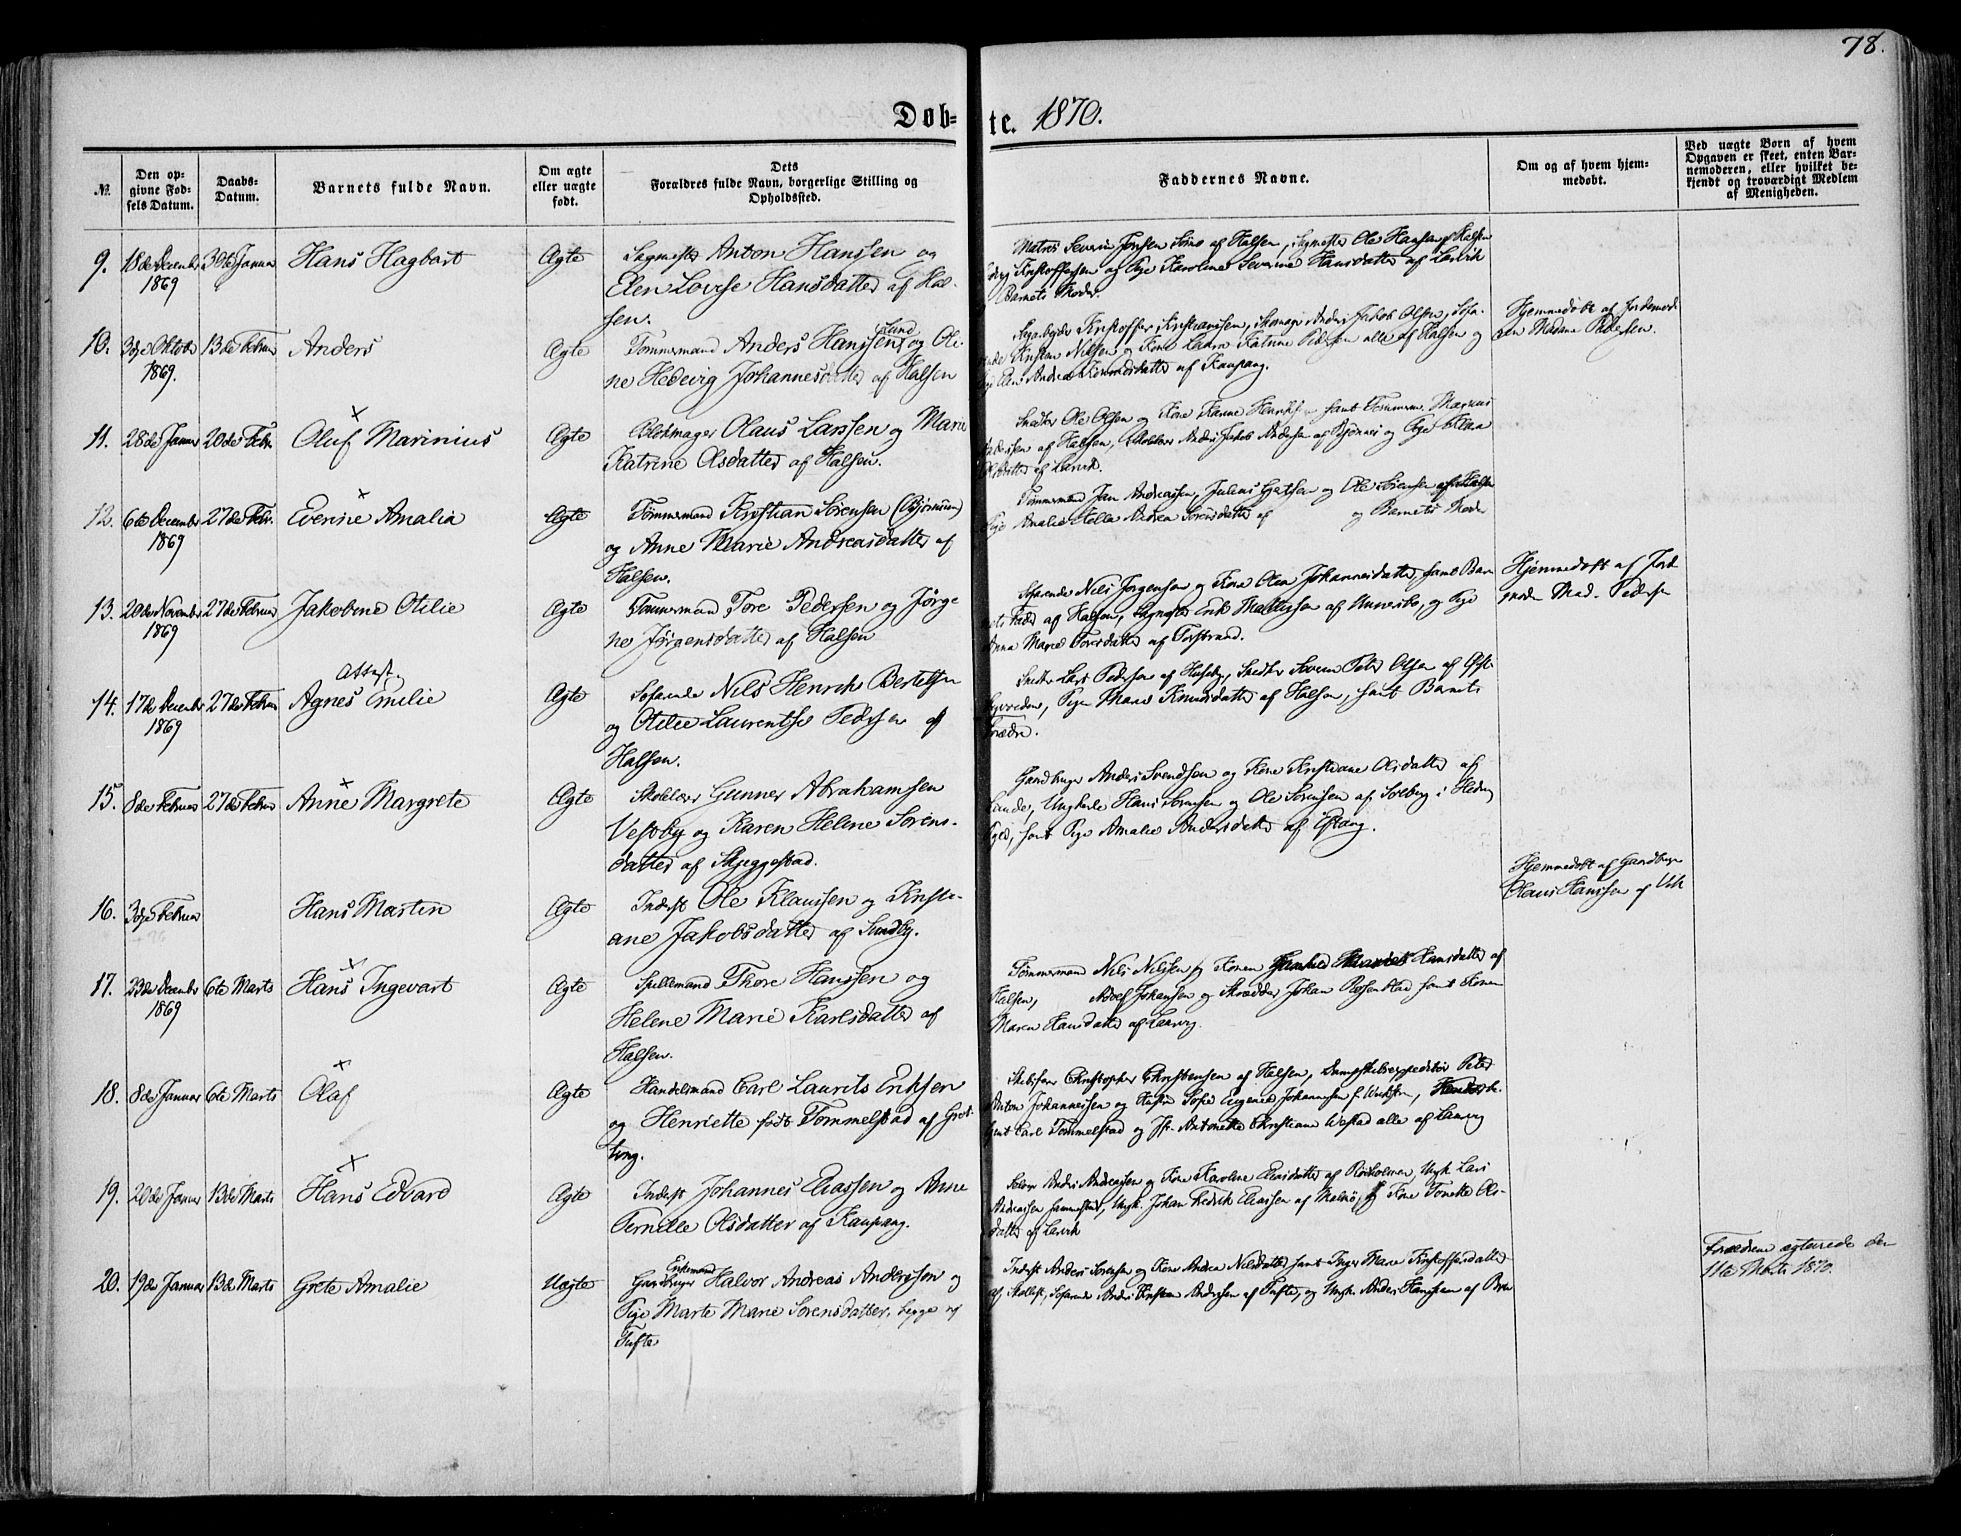 78.
Døb= te. 1870.
№.
Den op=
givne Fød=
sels Datum.
Daabs=
Datum.
Barnets fulde Navn.
Om ægte
eller uægte
født.
Dets
Forældres fulde Navn, borgerlige Stilling og
Opholdssted.
Faddernes Navne.
Om og af hvem hjem=
medøbt.
Ved uægte Børn af hvem
Opgaven er skeet, enten Bar=
nemoderen, eller hvilket be=
kjendt og troværdigt Medlem
af Menigheden.
9. 18de December 30te Januar Hans Hagbart Ægte Anton Hanssen og
1869 Elen Lovise Hansdatter af Hal-
sen.
Matros Severin Jensen af Halsen, Ole Hansen af Halsen
Kristoffersen og Pige Karoline Severine Hansdatter af Larvik
Barnets Moder.
10. 3die Oktober 13de Februar Anders Ægte Tømmermand Anders Hanssen Lund og Oli-
1869. ne Hedevig Johannesdatter af Halsen
Kristoffer Kristianssen, Jakob Olsen,
Kristen Nilsen og Kone Katrine alle af Halsen og
Andrea af Kaupang.
Hjemmedøbt af Jordemod-
ren Madame Pedersen.
11. 28de Januar 20de Febr. Oluf Marinius Ægte Blokmager Olaus Larssen og Marie
Katrine Olsdatter af Halsen.
Ole Olsen og Kone samt Tømmerm. Marius
af Halsen, Anders Jakob og Pige
af Larvik.
12. 6te December 27de Febr. Evenine Amalia Ægte Tømmermand Kristian Sørensen (Bjørnum)
1869 og Anne Marie Andreasdatter af
Halsen.
Tømmermand Jan Andreassen, Julius og Ole Sørensen af Halsen
Pige Amalie Andrea Sørensdatter af og Barnets Moder
13. 20de November 27de Februar Jakobine Otilie Ægte Tømmermand Tore Pedersen og Jørgi-
1869 ne Jørgensdatter af Halsen
Søfarende Nils Jørgensen og Kone Johannesdatter, samt Bar-
nets Fader af Halsen, Erik Mathissen af og Pige
Anna Marie Toresdatter af Torstrand.
Hjemmedøbt af Jord-
moder Mad. Pedersen
Attest
14. 17de December 27de Februar Agnes Emilie Ægte Søfarende Nils Henrik Bertelsen
1869 og Otilie Laurentse Pedersen af
Halsen.
Lars Pedersen af Huseby, Peter Olsen af
Pige Marie Knudsdatter af Halsen, samt Barnets
Forældre.
15. 8de Februar 27de Februar Anne Margrete Ægte Skolelærer Gunner Abrahamsen
Vestby og Karen Helene Sørens-
datter af Skjeggestad.
Gaardbruger Anders Svendsen og Kone Kristiane Olsdatter af
Lande, Ungkarle Hans Sørensen og Ole Sørensen af Solberg i Hedrum
samt Pige Amalie Andersdatter af
16. 3die Februar Hans Martin Ægte Inderst Ole Klaussen og Kristi-
ane Jakobsdatter af Sundby.
Hjemmedøbt af Gaardbruger
Olaus Hanssen af Vik
17. 23de December 6te Marts Hans Ingevart Ægte Spillemand Thore Hanssen og
1869 Helene Marie Karlsdatter af
Halsen.
Tømmermand Nils Nilssen og Konen Hansdatter af
Halsen, Adolf Johansen og Skrædder Johan Rosenblad samt Konen
Maren Hansdatter af Laurvig.
18. 8de Januar 6te Marts Olaf Ægte Handelsmand Carl Laurits Eriksen
og Henriette født Tommelstad af Grøt-
ting.
Christopher Christensen af Halsen, Dampskibsexpeditør Peter
Anton Johannessen og Hustru Sofie Eugenie Johannesen f.
Carl Tommelstad og Jfr. Antonette Christiane alle af Laurvig
19. 20de Januar 13de Marts Hans Edvard Ægte Inderst Johannes Eliassen og Anne
Pernille Olsdatter af Kaupang.
Anders Andreassen og Kone Karoline Eliasdatter af Rødholmen, Ungk. Lars
Andreassen sammested, Ungk. Johan Fredrik Eliassen af Malmø, og Kone Tonette Ols-
datter af Larvik
20. 19de Januar 13de Marts Grete Amalie Uægte Enkemand Gaardbruger Halvor Andreas Anderssen og
Pige Marte Marie Sørensdatter, begge af
Tufte
Inderst Anders Sørensen og Kone Andrea Nilsdatter, samt Inger Marie Kristoffersdatter
af Søfarende Anders Kristian Andersen af Tufte, og Ungk. Anders Hanssen af
Forældrene ægteviede den
11te Marts 1870.